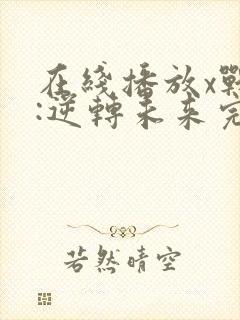 在綫播放x戰
:逆轉未来完
若然晴空